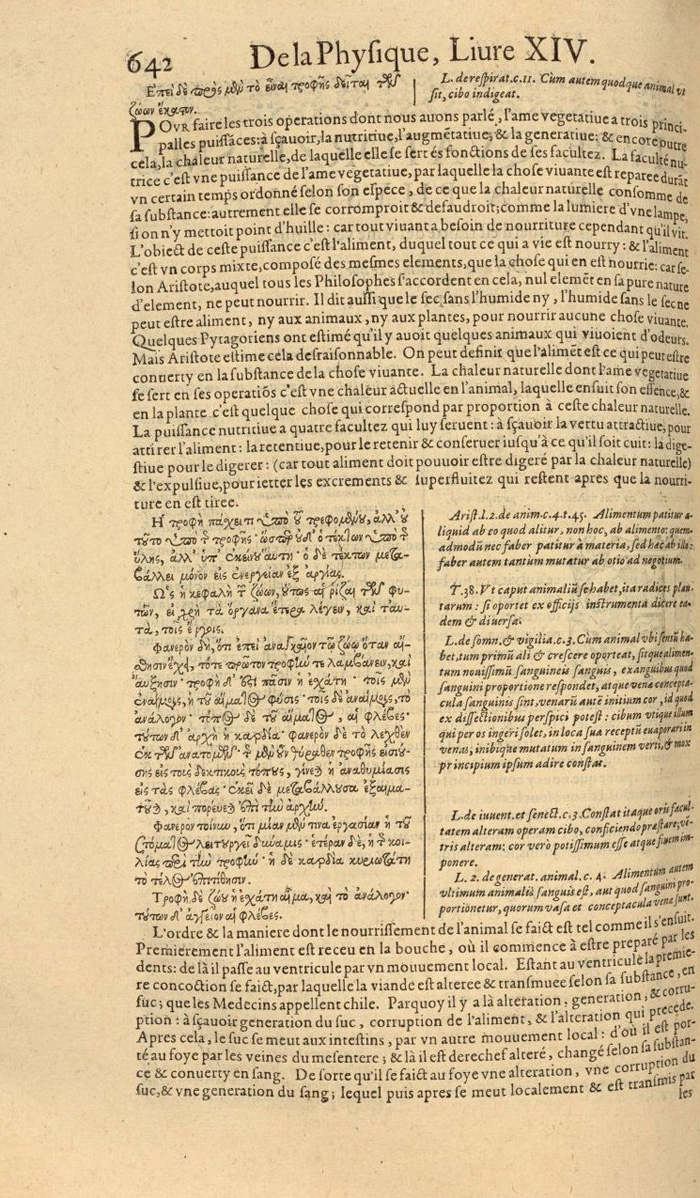 642 De la Phyſique, Liure XIV.
Επεὶ δὲ πρὸς μὲν τὸ εἶναι τροφῆς δεῖται τῶν
ζώων ἕκαστον.
L. de reſpirat.c.11. Cum autem quodque animal vt
ſit, cibo indigeat.
POVR faire les trois operations dont nous auons parlé, l'ame vegetatiue a trois princi-
palles puiſſāces: à ſçauoir, la nutritiue, l'augmētatiue, & la generatiue: & encore outre
cela, la chaleur naturelle, de laquelle elle ſe ſert és fonctions de ſes facultez. La faculté nu-
trice c'eſt vne puiſſance de l'ame vegetatiue, par laquelle la choſe viuante eſt reparee durāt
vn certain temps ordonné ſelon ſon eſpece, de ce que la chaleur naturelle conſomme de
ſa ſubſtance: autrement elle ſe corromproit & defaudroit; comme la lumiere d'vne lampe,
ſi on n'y mettoit point d'huille: car tout viuant a beſoin de nourriture cependant qu'il vit.
L'obiect de ceſte puiſſance c'eſt l'aliment, duquel tout ce qui a vie eſt nourry: & l'aliment
c'eſt vn corps mixte, compoſé des meſmes elements, que la choſe qui en eſt nourrie: car ſe-
lon Ariſtote, auquel tous les Philoſophes ſ'accordent en cela, nul elemēt en ſa pure nature
d'element, ne peut nourrir. Il dit auſſi que le ſec ſans l'humide ny, l'humide ſans le ſec ne
peut eſtre aliment, ny aux animaux, ny aux plantes, pour nourrir aucune choſe viuante.
Quelques Pytagoriens ont eſtimé qu'il y auoit quelques animaux qui viuoient d'odeurs.
Mais Ariſtote eſtime cela deſraiſonnable. On peut definir que l'alimēt eſt ce qui peut eſtre
conuerty en la ſubſtance de la choſe viuante. La chaleur naturelle dont l'ame vegetatiue
ſe ſert en ſes operatiōs c'eſt vne chaleur actuelle en l'animal, laquelle enſuit ſon eſſence, &
en la plante c'eſt quelque choſe qui correſpond par proportion à ceſte chaleur naturelle.
La puiſſance nutritiue a quatre facultez qui luy ſeruent: à ſçauoir la vertu attractiue, pour
attirer l'aliment: la retentiue, pour le retenir & conſeruer iuſqu'à ce qu'il ſoit cuit: la dige-
ſtiue pour le digerer: (car tout aliment doit pouuoir eſtre digeré par la chaleur naturelle)
& l'expulſiue, pour ietter les excrements & ſuperfluitez qui reſtent apres que la nourri-
ture en eſt tiree.
Η τροφὴ πάσχει τι ὑπὸ τοῦ τρεφομένου, ἀλλ' οὐ
τοῦτο ὑπὸ τῆς τροφῆς· ὥσπερ οὐδ' ὁ τέκτων ὑπὸ τῆς
ὕλης, ἀλλ' ὑπ' ἐκείνου αὕτη· ὁ δὲ τέκτων μετα-
βάλλει μόνον εἰς ἐνέργειαν ἐξ ἀργίας.
Ως ἡ κεφαλὴ τῶν ζώων, οὕτως αἱ ῥίζαι τῶν φυ-
τῶν, εἰ χρὴ τὰ ὄργανα ἕτερα λέγειν, καὶ ταυ-
τὰ, τοῖς ἔργοις.
Φανερὸν δὴ, ὅτι ἐπεὶ ἀναγκαῖον τῷ ζώῳ ὅταν αἴ-
σθησιν ἔχῃ, τότε πρῶτον τροφήν τε λαμβάνειν, καὶ
αὔξησιν· τροφὴ δ' ἐστὶ πᾶσιν ἡ ἐσχάτη· τοῖς μὲν
ἐναίμοις, ἡ τοῦ αἵματος φύσις· τοῖς δὲ ἀναίμοις, τὸ
ἀνάλογον· τόπος δὲ τοῦ αἵματος, αἱ φλέβες·
τούτων δ' ἀρχὴ ἡ καρδία· φανερὸν δὲ τὸ λεχθὲν
ἐκ τῶν ἀνατομῶν· τῆς μὲν οὖν θύραθεν τροφῆς εἰσιού-
σης εἰς τοὺς δεκτικοὺς τόπους, γίνεται ἡ ἀναθυμίασις
εἰς τὰς φλέβας· ἐκεῖ δὲ μεταβάλλουσα ἐξαιμα-
τοῦται, καὶ πορεύεται ἐπὶ τὴν ἀρχήν.
Φανερὸν τοίνυν, ὅτι μίαν μέν τινα ἐργασίαν ἡ τοῦ
στόματος λειτουργεῖ δύναμις· ἑτέραν δὲ, ἡ τῆς κοι-
λίας περὶ τὴν τροφήν· ἡ δὲ καρδία κυριωτάτη
τὸ τέλος ἐπιτίθησιν.
Τροφὴ δὲ ζώου ἡ ἐσχάτη αἷμα, καὶ τὸ ἀνάλογον·
τούτων δ' ἀγγεῖον αἱ φλέβες.
Ariſt. l.2. de anim.c.4.t.45. Alimentum patitur a-
liquid ab eo quod alitur, non hoc, ab alimento: quem-
admodū nec faber patitur à materia, ſed hæc ab illo:
faber autem tantium mutatur ab otio ad negotium.
T.38. Vt caput animaliū ſe habet, ita radices plan-
tarum: ſi oportet ex officijs inſtrumenta dicere ea-
dem & diuerſa.
L. de ſomn. & vigilia.c.3. Cum animal vbi ſenſū ha-
bet, tum primū ali & creſcere oporteat, ſitque alimen-
tum nouiſſimū ſanguineis ſanguis, exanguibus quod
ſanguini proportione reſpondet, atque vena concepta-
cula ſanguinis ſint, venarū autē initium cor, id quod
ex diſſectionibus perſpici poteſt: cibum vtique illum
qui per os ingeri ſolet, in loca ſua receptū euaporari in
venas, inibique mutatum in ſanguinem verti, & mox
principium ipſum adire conſtat.
L. de iuuent. et ſenect.c.3. Conſtat itaque oris facul-
tatem alteram operam cibo, conficiendo præſtare; vē-
tris alteram: cor verò potiſſimum eſſe atque finem im-
ponere.
L. 2. de generat. animal. c. 4. Alimentum autem
vltimum animalis ſanguis eſt, aut quod ſanguini pro-
portionetur, quorum vaſa et conceptacula venæ ſunt.
L'ordre & la maniere dont le nourriſſement de l'animal ſe faict eſt tel comme il ſ'enſuit.
Premierement l'aliment eſt receu en la bouche, où il commence à eſtre preparé par les
dents: de là il paſſe au ventricule par vn mouuement local. Eſtant au ventricule la premie-
re concoction ſe faict, par laquelle la viande eſt alteree & tranſmuee ſelon ſa ſubſtance, en
ſuc; que les Medecins appellent chile. Parquoy il y a là alteration, generation, & corru-
ption: à ſçauoir generation du ſuc, corruption de l'aliment, & l'alteration qui precede.
Apres cela, le ſuc ſe meut aux inteſtins, par vn autre mouuement local: d'où il eſt por-
té au foye par les veines du meſentere; & là il eſt derechef alteré, changé ſelon ſa ſubſtan-
ce & conuerty en ſang. De ſorte qu'il ſe faict au foye vne alteration, vne corruption du
ſuc, & vne generation du ſang; lequel puis apres ſe meut localement & eſt tranſmis par
les